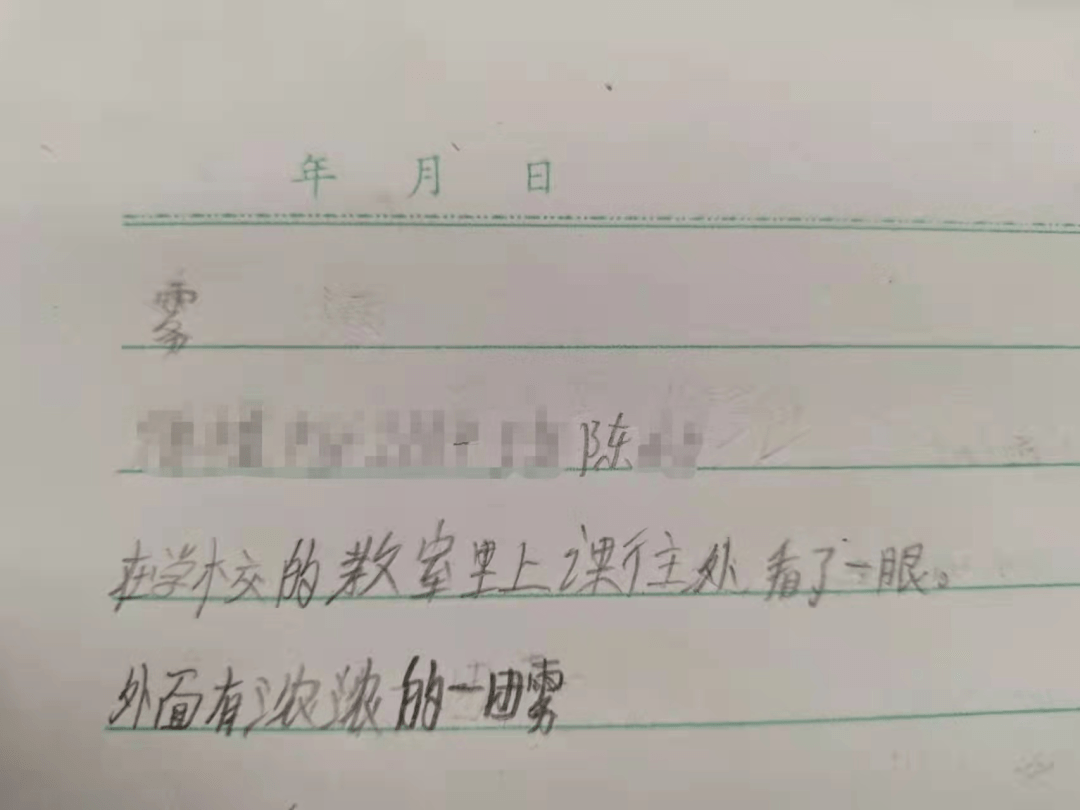 年 月 日
雾
陈
在学校的教室里上课往处看了一眼。
外面有浓浓的一团雾